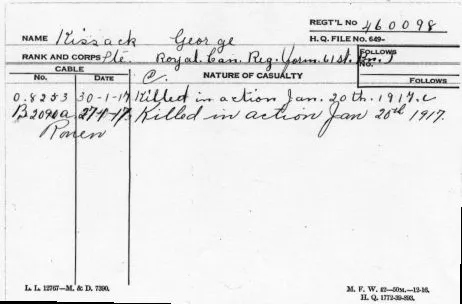 REGT'L NO 460098
NAME Kissack George
H. Q. FILE NO. 649-
RANK AND CORPS Pte. Royal Can. Reg. (form. 61st. Bn.)
FOLLOWS
NO.
CABLE
NO. DATE C. NATURE OF CASUALTY
FOLLOWS
O.8253 30-1-17 Killed in action Jan. 20th. 1917. C
B2090a 27-1-17. Killed in action Jan 20th 1917.
Rouen
L. L. 12767—M. & D. 7390.
M. F. W. 42—50M.—12-16.
H. Q. 1772-39-893.